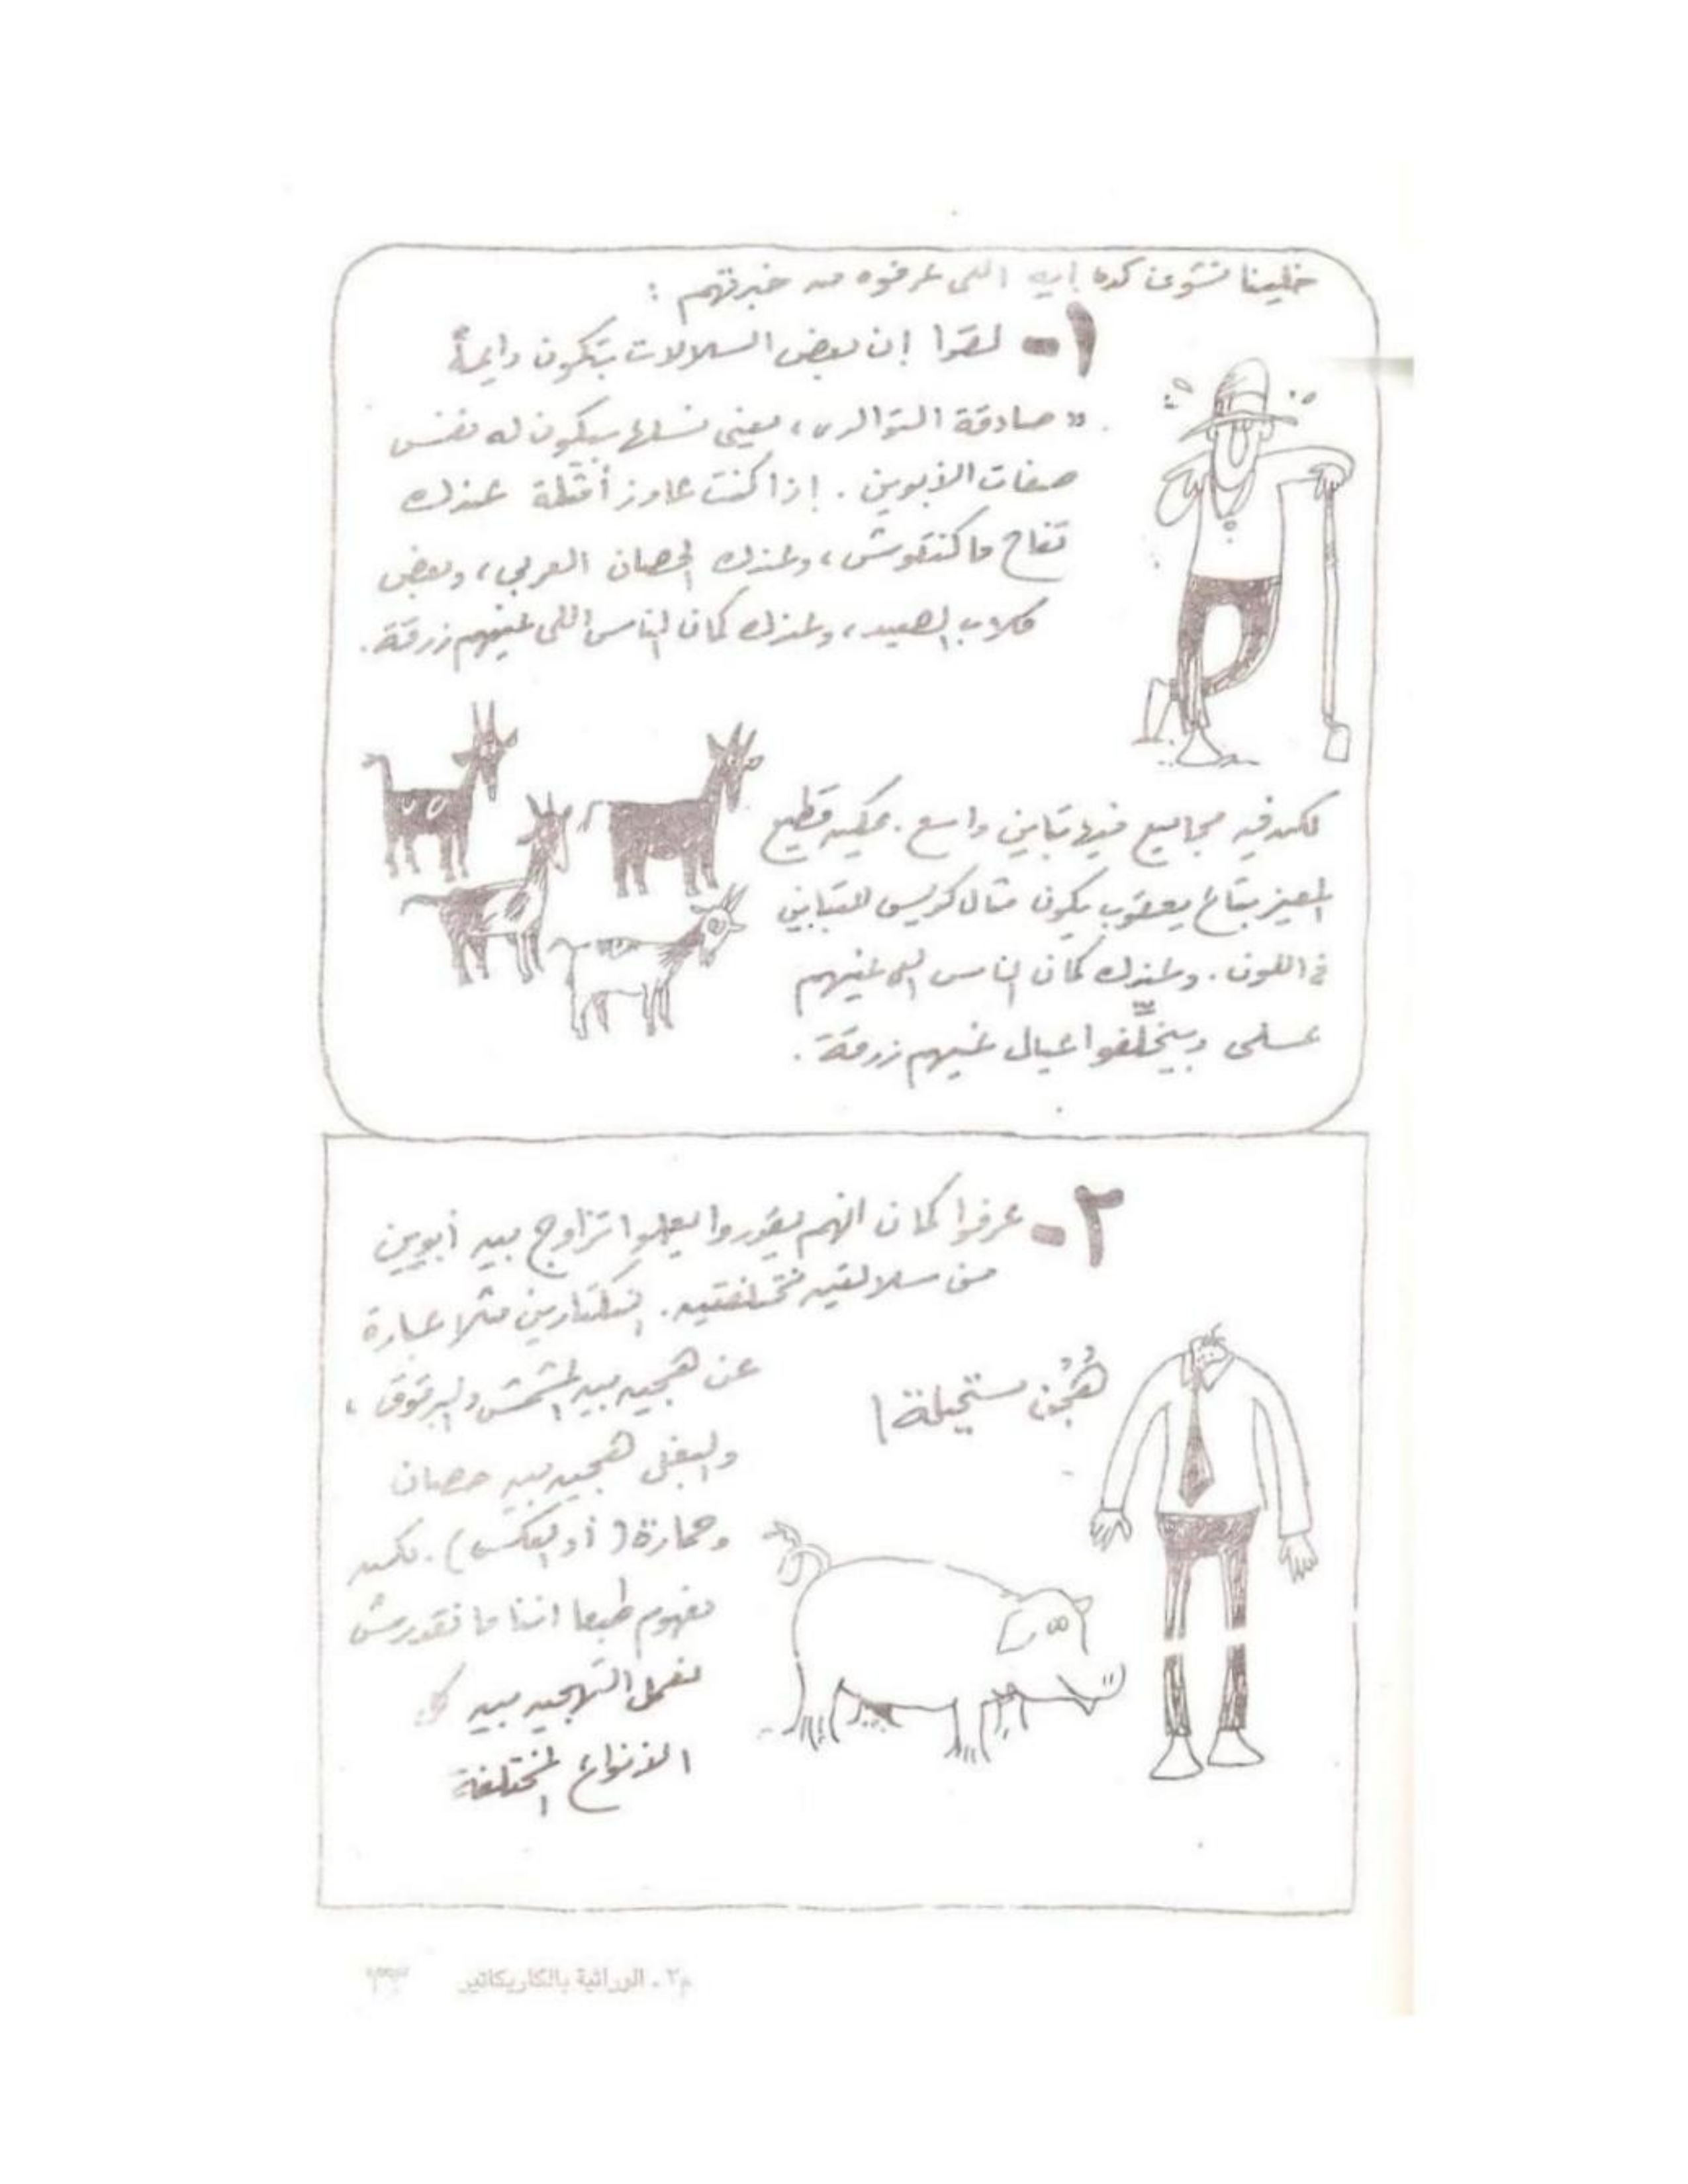 خلينا نشوف كده إيه اللى عرفوه من خبرتهم :
١- لقوا إن بعض السلالات بتكون دايماً
« صادقة التوالد »، يعنى نسلها بيكون له نفس
صفات الأبوين . إذا كنت عاوز أمثلة عندك
تفاح ماكنتوش، وعندك الحصان العربى، وبعض
كلاب الصيد، وعندك كمان الناس اللى عنيهم زرقة.
لكن فيه مجاميع فيها تباين واسع . يمكن قطيع
المعيز بتاع يعقوب يكون مثال كويس للتباين
فى اللون . وعندك كمان الناس اللى عنيهم
عسلى وبيخلّفوا عيال عنيهم زرقة .
٢- عرفوا كمان انهم يقدروا يعملوا تزاوج بين أبوين
من سلالتين مختلفتين. النكتارين مثلا عبارة
عن هجين بين المشمش والبرقوق ،
والبغل هجين بين حصان
وحمارة ( أو العكس ) . لكن
مفهوم طبعا اننا ما نقدرش
نعمل التهجين بين كل
الأنواع المختلفة
هُجُن مستحيلة !
م٢ . الوراثية بالكاريكاتير ٣٣